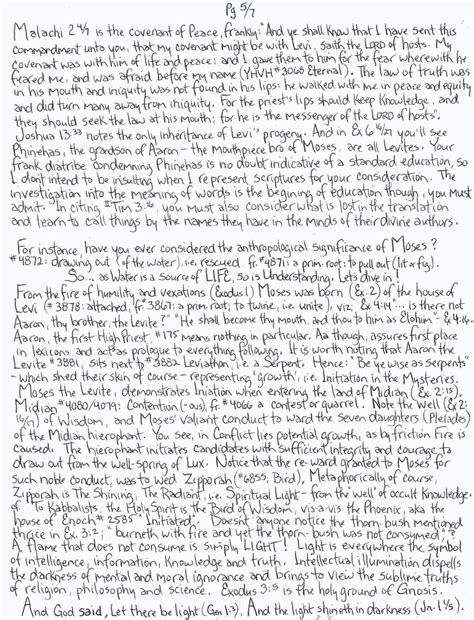 Pg 5/7
Malachi 2 4/7 is the covenant of Peace, franky: "And ye shall know that I have sent this
commandment unto you, that my covenant might be with Levi, saith the LORD of hosts. My
covenant was with him of life and peace; and I gave them to him for the fear wherewith he
feared me, and was afraid before my name (YHVH #3068 Eternal). The law of truth was
in his mouth and iniquity was not found in his lips: he walked with me in peace and equity,
and did turn many away from iniquity. For the priest's lips should keep knowledge, and
they should seek the law at his mouth; for he is the messenger of the LORD of hosts".
Joshua 13:33 notes the only inheritance of Levi's progeny. And in Ex 6 you'll see
Phinehas, the grandson of Aaron - the mouthpiece bro of Moses, are all Levites. Your
frank diatribe condemning Phinehas is no doubt indicative of a standard education, so
I don't intend to be insulting when I represent scriptures for your consideration. The
investigation into the meaning of words is the begining of education though, you must
admit. In citing Tim 3:16 you must also consider what is lost in the translation
and learn to call things by the names they have in the minds of their divine authors.
For instance, have you ever considered the anthropological significance of Moses?
#4872: drawing out (of the water), i.e. rescued. fr. #4871: a prim root: to pull out (lit or fig).
So... as Water is a source of LIFE, so is Understanding. Let's dive in!
From the fire of humility and vexations (Exodus 1) Moses was born (Ex. 2) of the house of
Levi (#3878: attached, fr. 3867: a prim root; to twine, i.e. unite), viz. Ex 4:14 "... is there not
Aaron, thy brother, the Levite?" "He shall become thy mouth, and thou to him as Elohim" 4:16
Aaron, the first High Priest, #175 means nothing in particular. Aa though, assures first place
in lexicons and act as prologue to everything following. It is worth noting that Aaron the
Levite #3881, sits next to #3882 Leviathan, i.e. a Serpent. Hence: "Be ye wise as serpents"
- which shed their skin of course - representing 'growth', i.e. Initiation in the Mysteries.
Moses the Levite, demonstrates Iniation when entering the land of Midian (Ex. 2:15).
Midian #4080/4079: Contention (-ous), fr. #4066 a contest or quarrel. Note the Well (Ex 2:
16/17) of Wisdom, and Moses' valiant conduct to ward the seven daughters (Pleiades)
of the Midian hierophant. You see, in Conflict lies potential growth, as by friction Fire is
caused. The hierophant initiates candidates with sufficient integrity and courage to
draw out from the well-spring of Lux. Notice that the re-ward granted to Moses for
such noble conduct, was to wed Zipporah (#6855; Bird), Metaphorically of course,
Zipporah is The Shining, The Radiant, i.e. Spiritual Light - from the 'well' of occult Knowledge.
To Kabbalists, the Holy Spirit is the Bird of Wisdom, vis-a-vis the Phoenix, aka the
house of Enoch #2585 "Initiated". Doesn't anyone notice the thorn-bush mentioned
thrice in Ex. 3:2; "burneth with fire and yet the thorn-bush was not consumed"?
A flame that does not consume is simply LIGHT! Light is everywhere the symbol
of intelligence, information, Knowledge and truth. Intellectual illumination dispells
the darkness of mental and moral ignorance and brings to view the sublime truths
of religion, philosophy and science. Exodus 3:5 is the holy ground of Gnosis.
And God said, Let there be light (Gen 1:3), And the light shineth in darkness (Jn. 1:5)